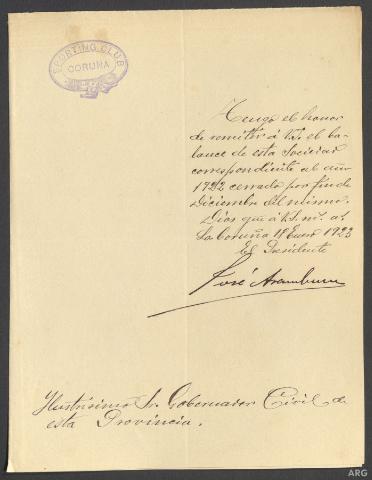 SPORTING CLUB
CORUÑA
Tengo el honor
de remitir á V.S. el ba-
lance de esta Sociedad
correspondiente al año
1922 cerrado por fin de
Diciembre del mismo.
Dios gue á V.S. ms. as.
La Coruña Enero 1923
El Presidente
José Aramburu
Ylustrísimo Sr. Gobernador Civil de
esta Provincia.
ARG